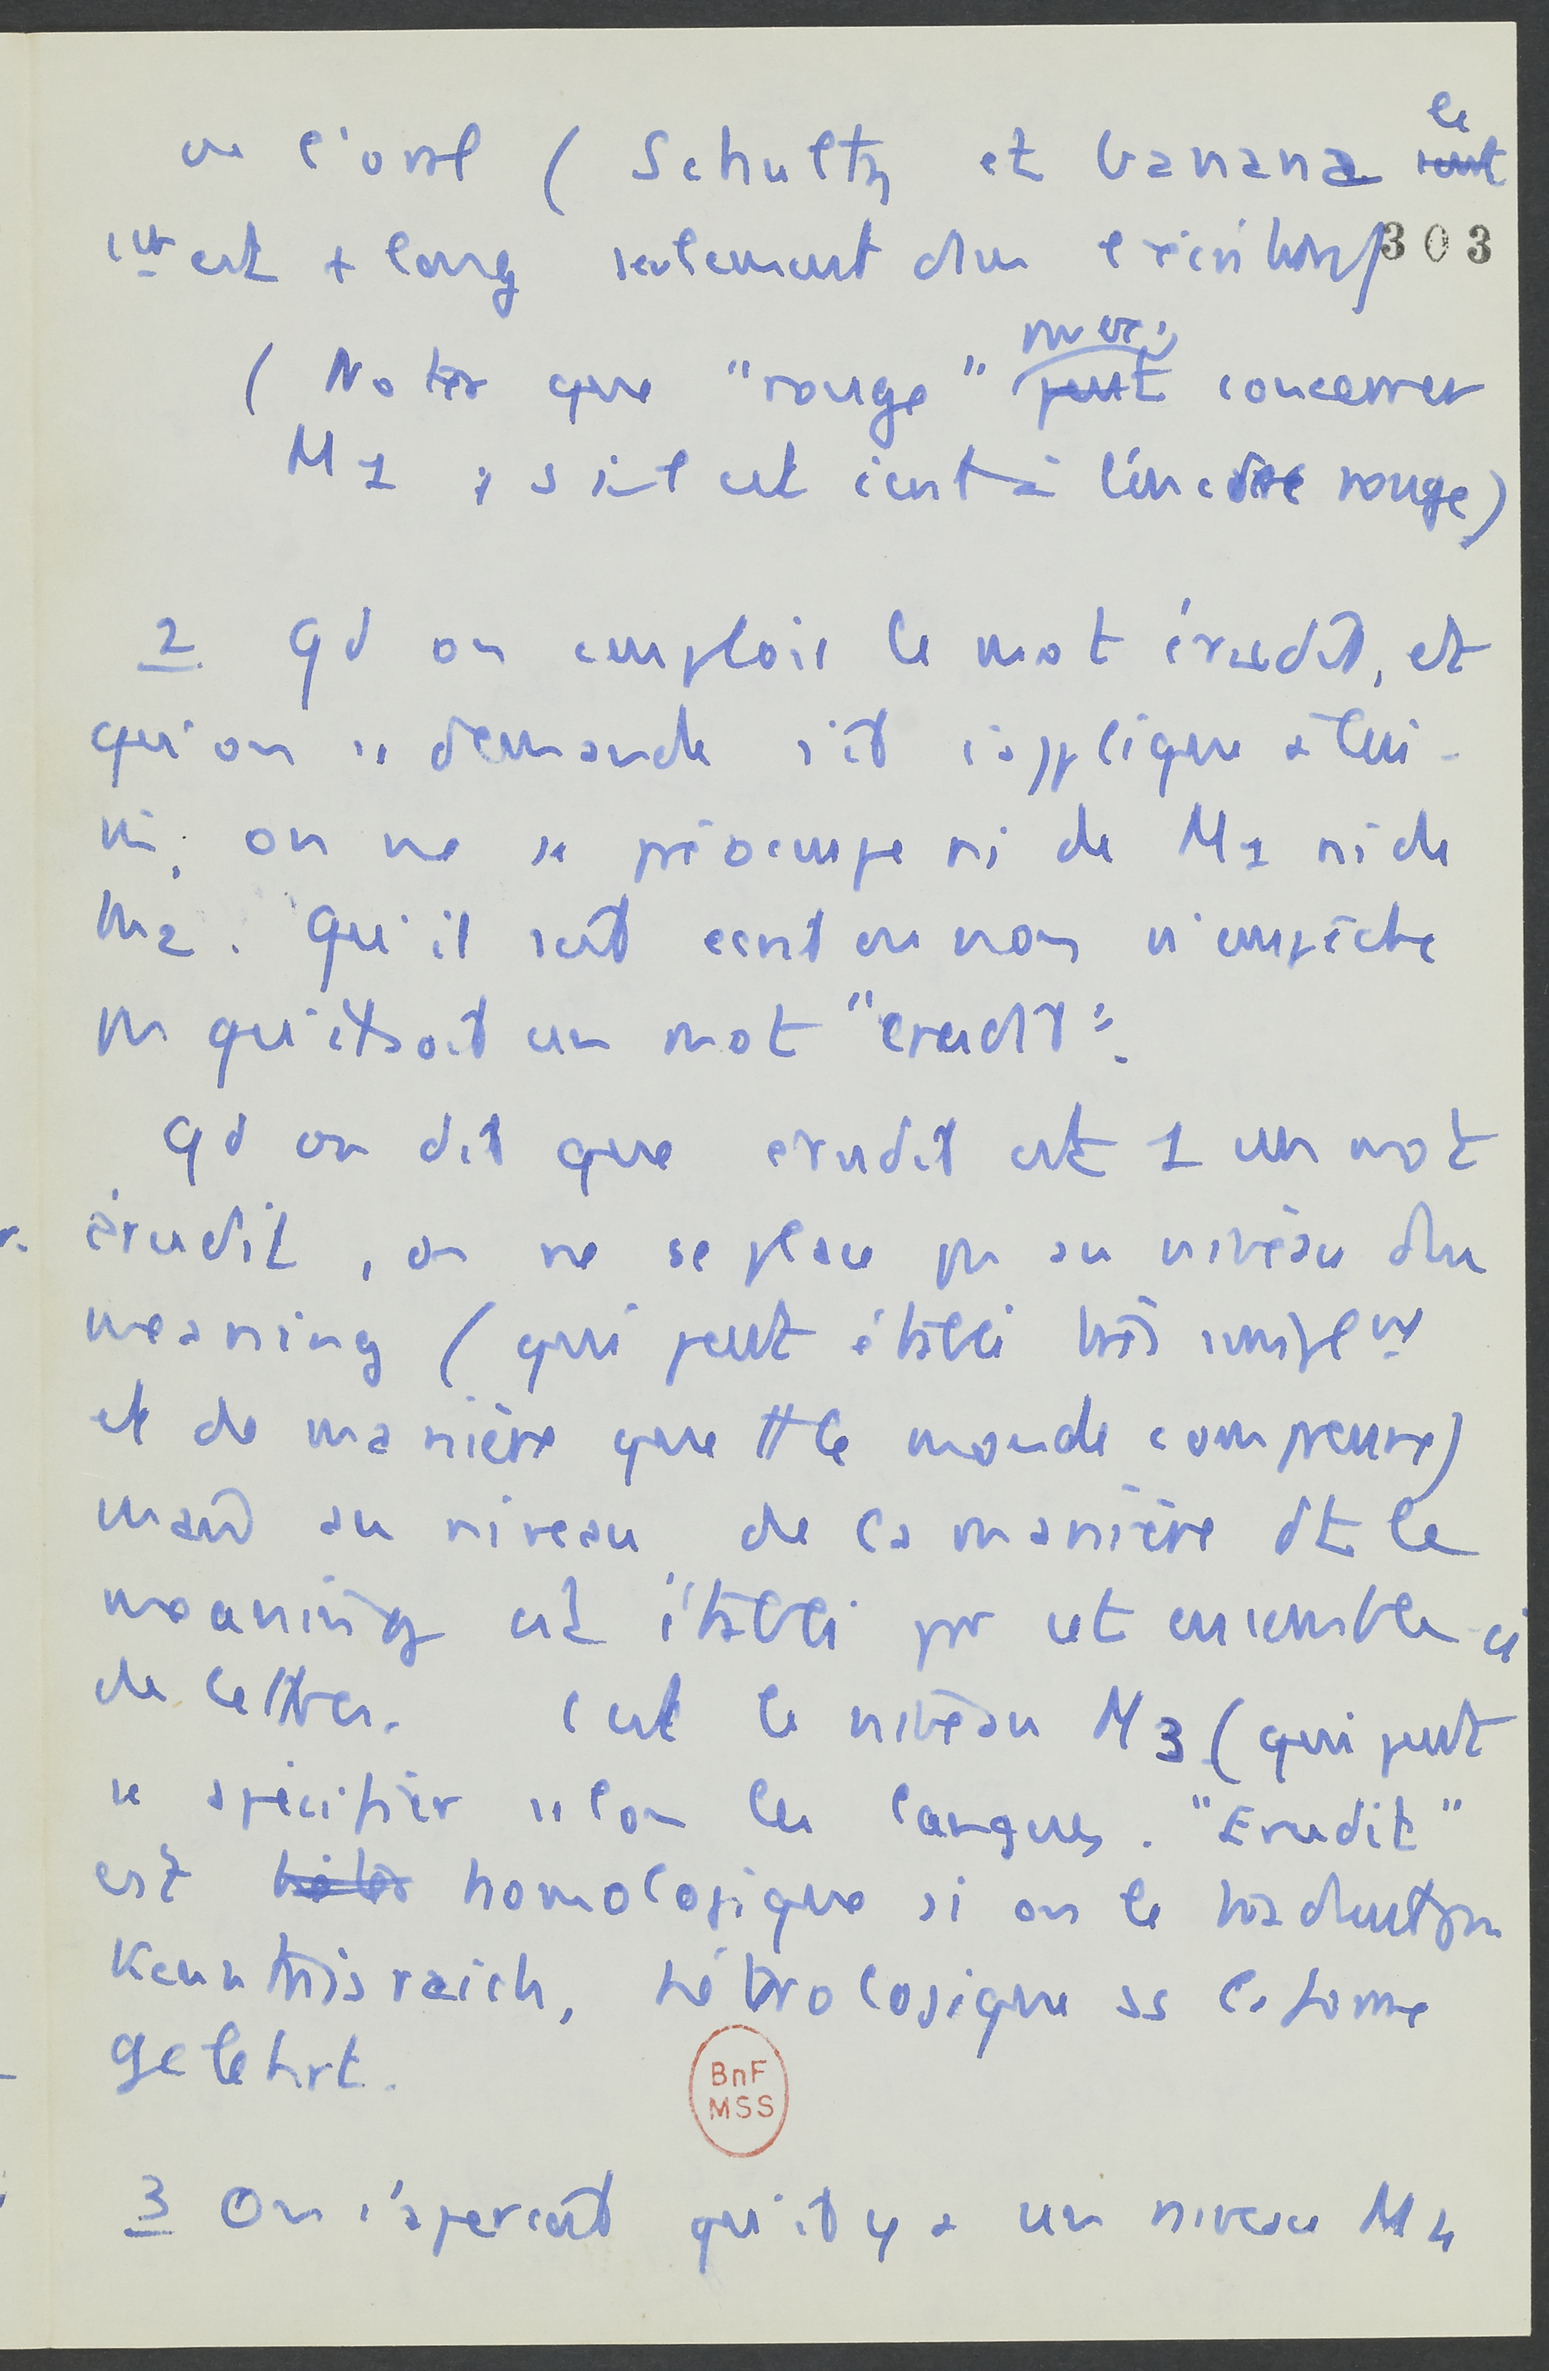 ou l'oral ( Schultz et banana le
1er est + long seulement dans l'écriture) 303
( Noter que "rouge" peut concerner
M1 ; s'il est écrit à l'encre rouge)
2 Qd on emploie le mot érudit, et
qu'on se demande s'il s'applique à lui-
m̂, on ne se préoccupe ni de M1 ni de
M2. Qu'il soit écrit ou non n'empêche
pas qu'il soit un mot "erudit".
Qd on dit que erudit est 1 un mot
érudit, on ne se place pas au niveau du
meaning (qui peut établi très simplemt
et de manière que tt le monde comprenne)
mais au niveau de la manière dt le
meaning est établi par cet ensemble ci
de lettres. C'est le niveau M3 (qui peut
se spécifier selon les langues. "Erudit"
est hétéro homologique si on le traduit par
Kenntnisreich, hétérologique ss la forme
gelehrt.
BnF
MSS
3 On s'aperçoit qu'il y a un niveau M4